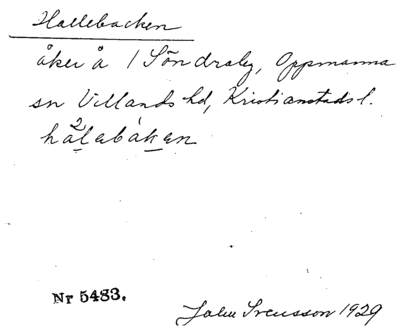 Hallebacken
åker å 1 Söndraby, Oppmanna
sn Villands hd, Kristianstads l.
hàlebàken
Nr 5483.
John Svensson 1929